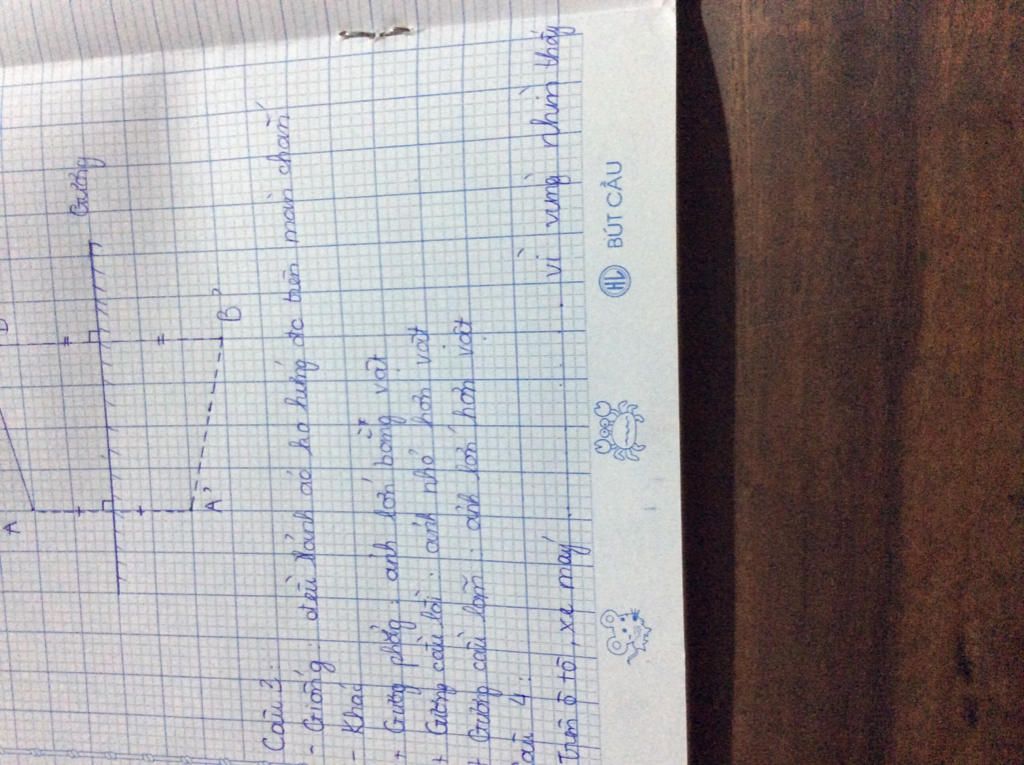 A
Gương
A'
B'
Câu 3:
- Giống: đều là ảnh ảo ko hứng đc trên màn chắn
- Khác
+ Gương phẳng: ảnh lớn bằng vật
+ Gương cầu lồi: ảnh nhỏ hơn vật
+ Gương cầu lõm: ảnh lớn hơn vật
âu 4:
Trên ô tô, xe máy ............ vì vùng nhìn thấy
HL BÚT CẦU